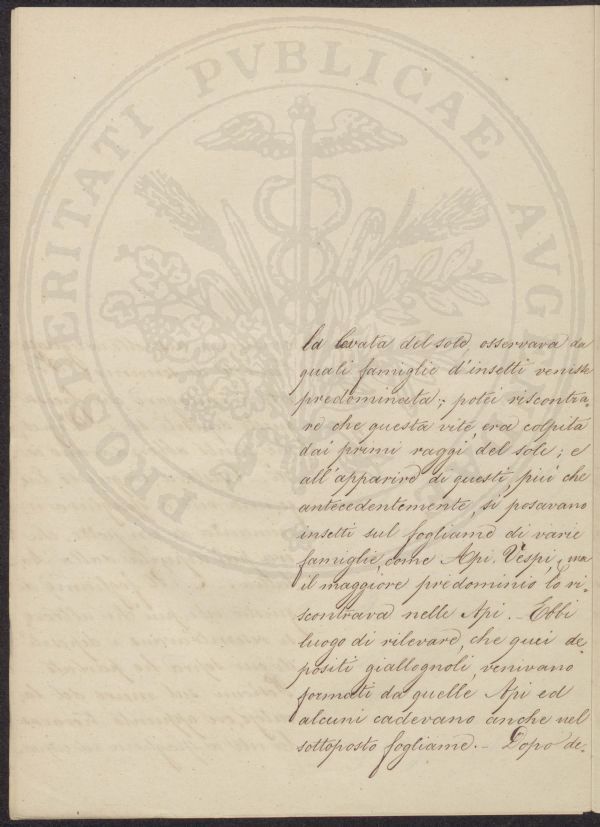 PROSPERITATI PVBLICAE AVGENDAE
la levata del sole, osservava da
quali famiglie d'insetti venisse
predominata; potei riscontra-
re che questa vite era colpita
dai primi raggi del sole; e
all'apparire di questi, più che
antecedentemente, si posavano
insetti sul fogliame di varie
famiglie, come Api. Vespi, ma
il maggiore predominio lo ri-
scontrava nelle Api. Ebbi
luogo di rilevare, che quei de
positi giallognoli, venivano
formati da quelle Api ed
alcuni cadevano anche nel
sottoposto fogliame. - Dopo de-